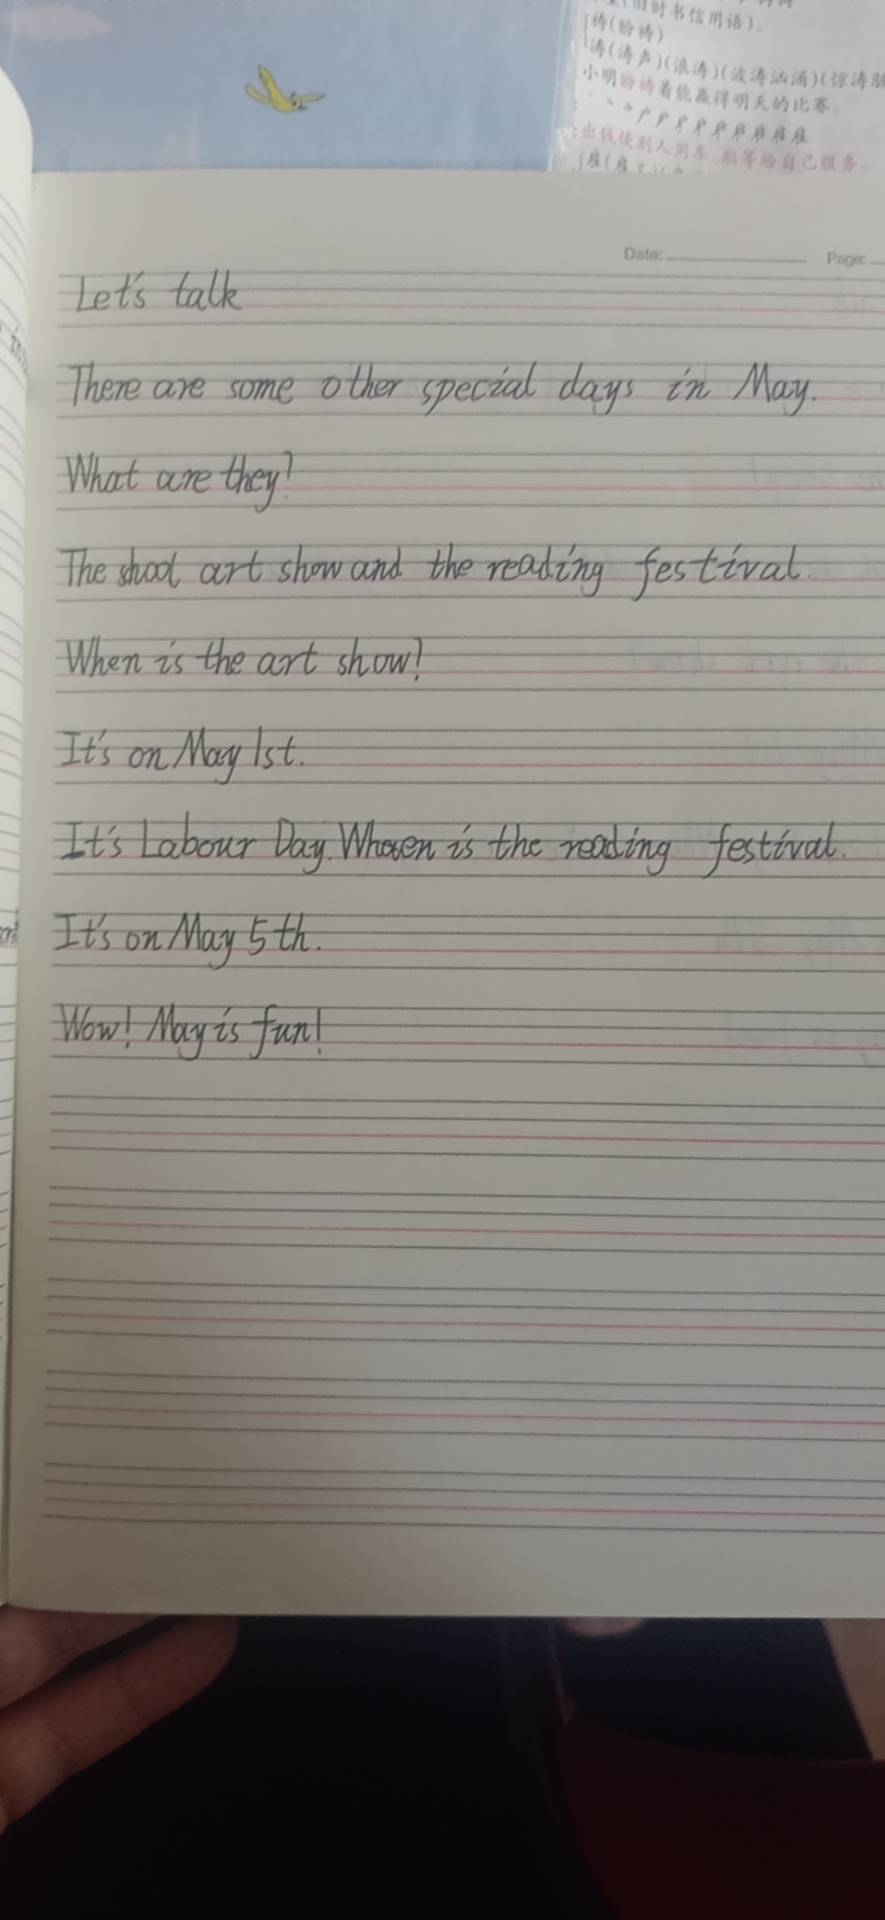 (旧时书信用语)。
祷(盼祷)
涛(涛声)(浪涛)(波涛汹涌)(惊涛骇
小明盼祷着能赢得明天的比赛。
:出钱使别人用车、船等给自己服务。
雇(雇
Date:
Page:
Let's talk
There are some other special days in May.
What are they?
The shool art show and the reading festival.
When is the art show?
It's on May 1st.
It's Labour Day. When is the reading festival.
It's on May 5th.
Wow! May is fun!